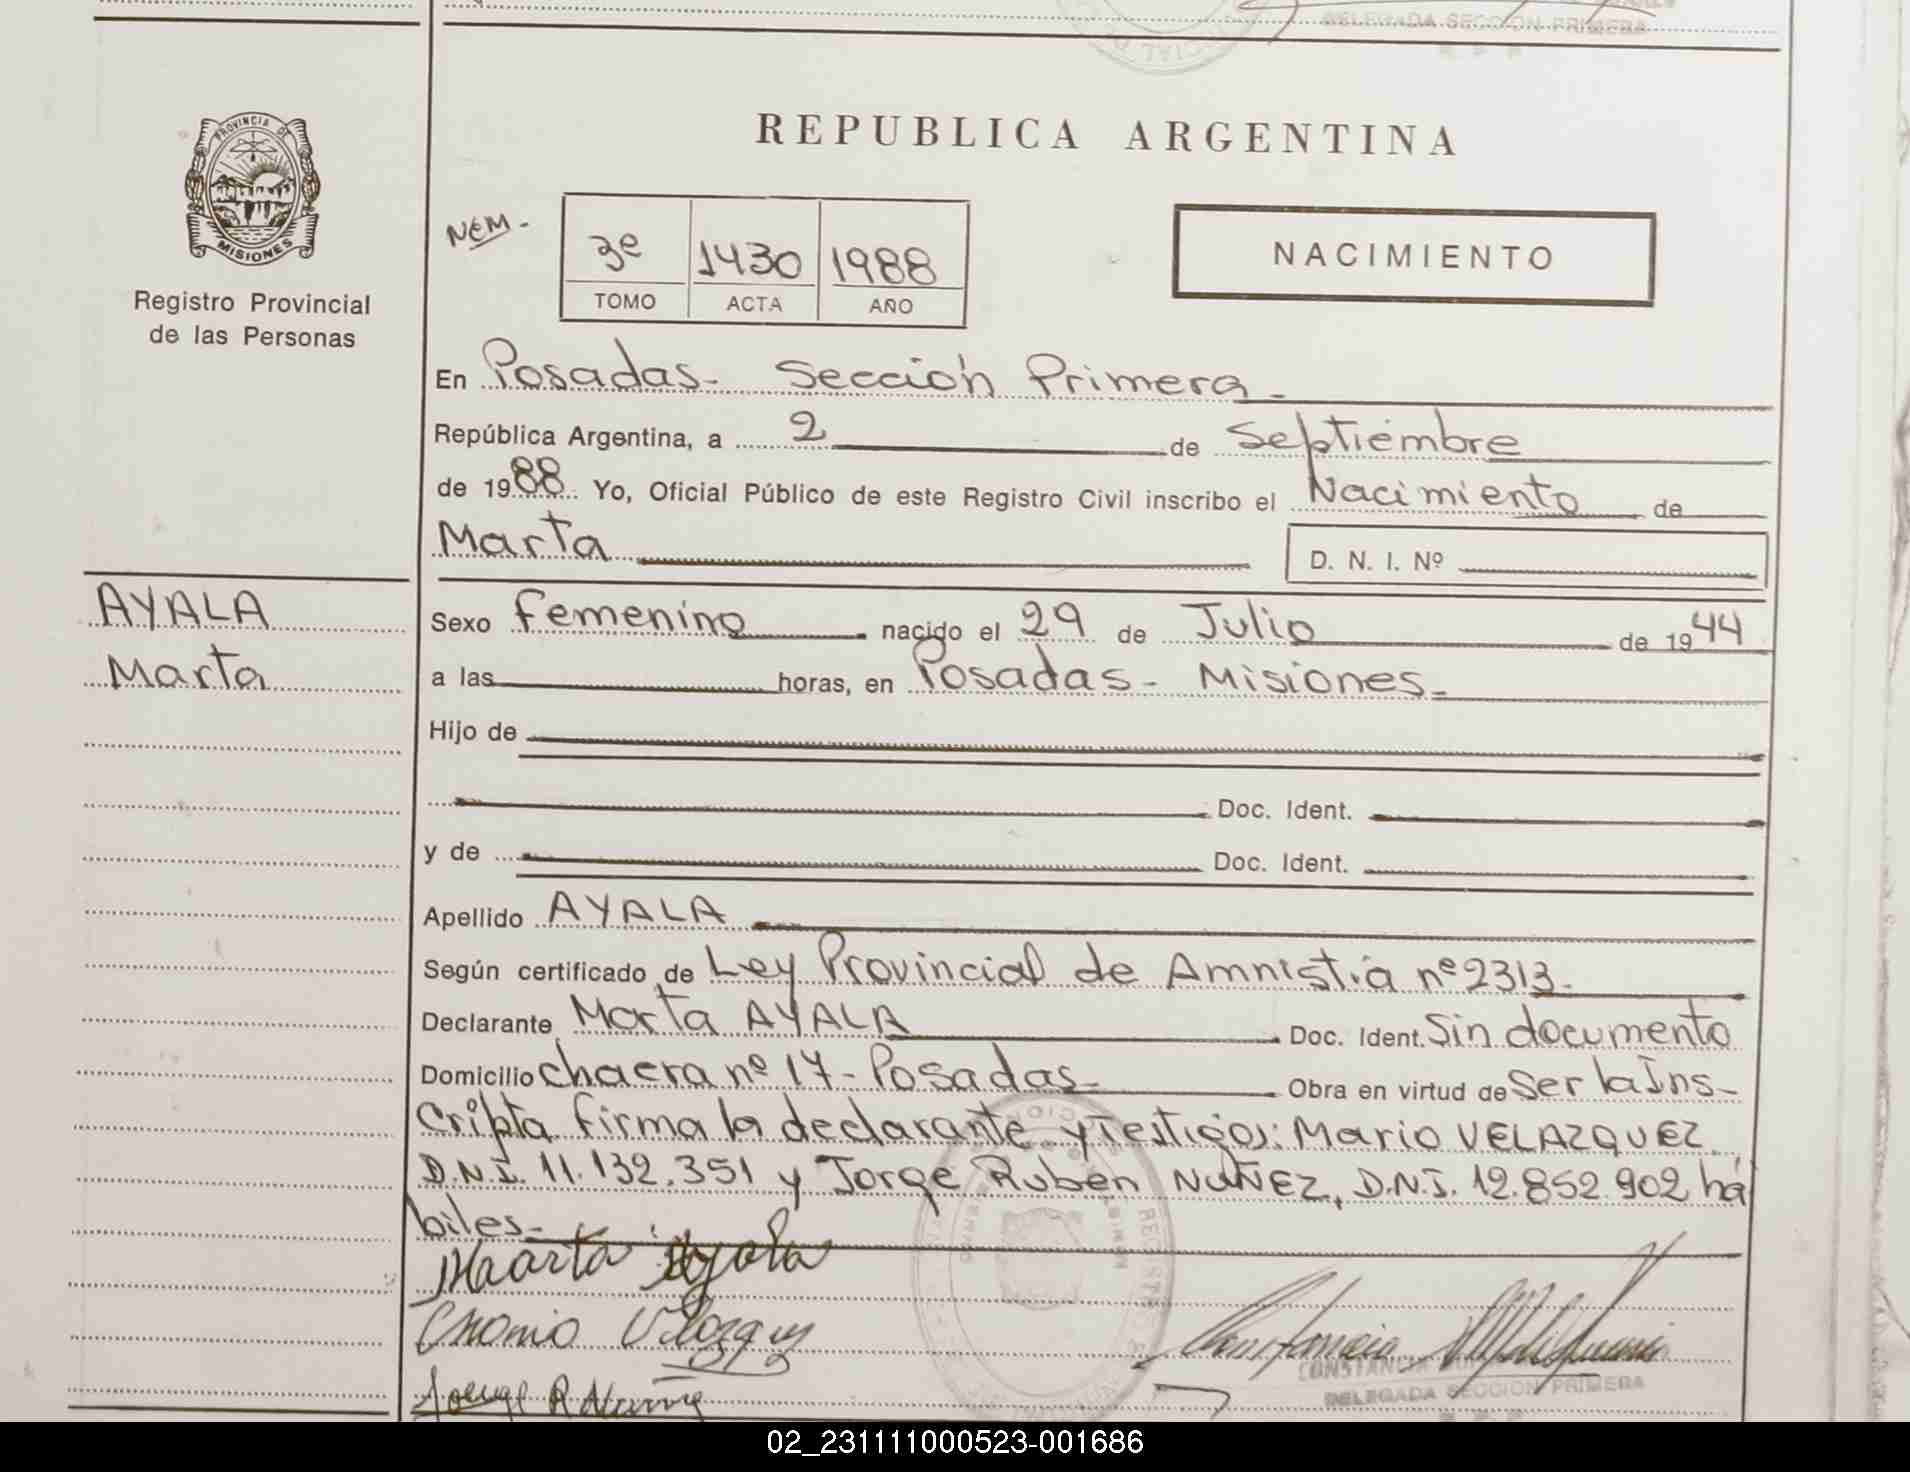 DELEGADA SECCION PRIMERA
PROVINCIA DE
MISIONES
Registro Provincial
de las Personas
REPUBLICA ARGENTINA
NEM.-
3º 1430 1988
TOMO ACTA AÑO
NACIMIENTO
En Posadas- Sección Primera-
República Argentina, a 2 de Septiembre
de 1988. Yo, Oficial Público de este Registro Civil inscribo el Nacimiento de
Marta D. N. I. Nº
AYALA
Marta
Sexo femenino nacido el 29 de Julio de 1944
a las horas, en Posadas- Misiones-
Hijo de
Doc. Ident.
y de Doc. Ident.
Apellido AYALA
Según certificado de Ley Provincial de Amnistia nº 2313-
Declarante Marta AYALA Doc. Ident. Sin documento
Domicilio chacra nº 17- Posadas- Obra en virtud de Ser la Ins-
cripta firma la declarante y Testigos: Mario VELAZQUEZ
D.N.I. 11.132.351 y Jorge Ruben NUÑEZ, D.N.I. 12.852.902 há
biles-
Marta Ayala
DELEGADA SECCION PRIMERA
02_231111000523-001686